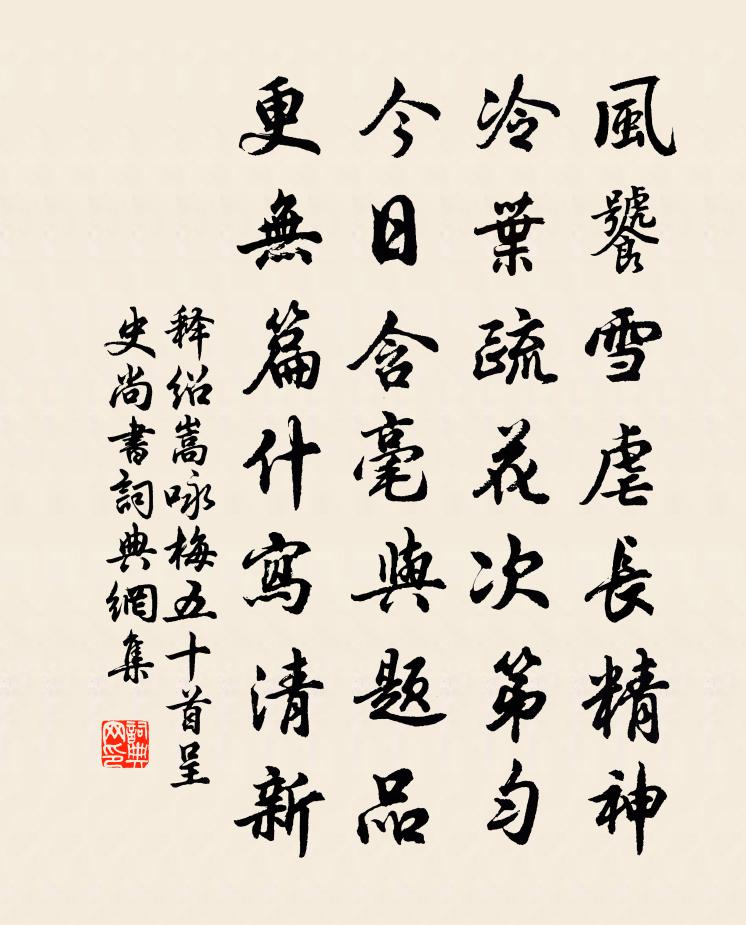 風饕雪虐長精神
冷葉疏花次第勻
今日含毫與題品
更無篇什寫清新
释绍嵩咏梅五十首呈
史尚書詞典網集
詞典
网印